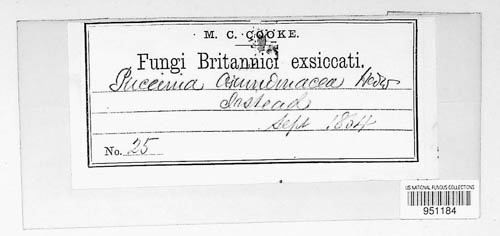 M. C. COOKE.
Fungi Britannici exsiccati.
Puccinia arundinacea Hedw
Instead
Sept 1864
No. 25
US NATIONAL FUNGUS COLLECTIONS
951184